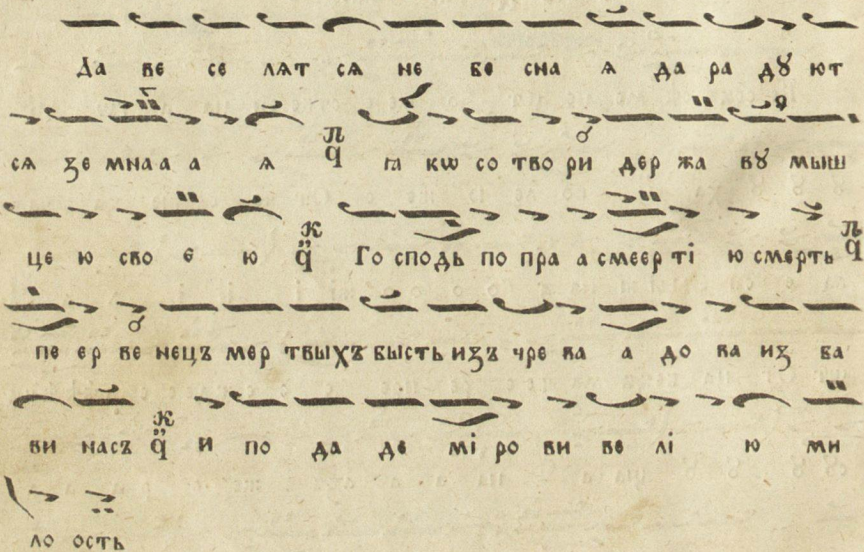 Да ве се лѧт сѧ не бе сна ѧ да ра дꙋ ют
сѧ зе мнаа а ѧ п ꙗ кѡ со тво ри дер жа вꙋ мыш
це ю сво е ю к Го сподь по пра а смеер ті ю смерть п
пе ер ве нецъ мер твыхъ бысть изъ чре ва а до ва из ба
ви насъ к и по да де мі ро ви ве лі ю ми
ло ость